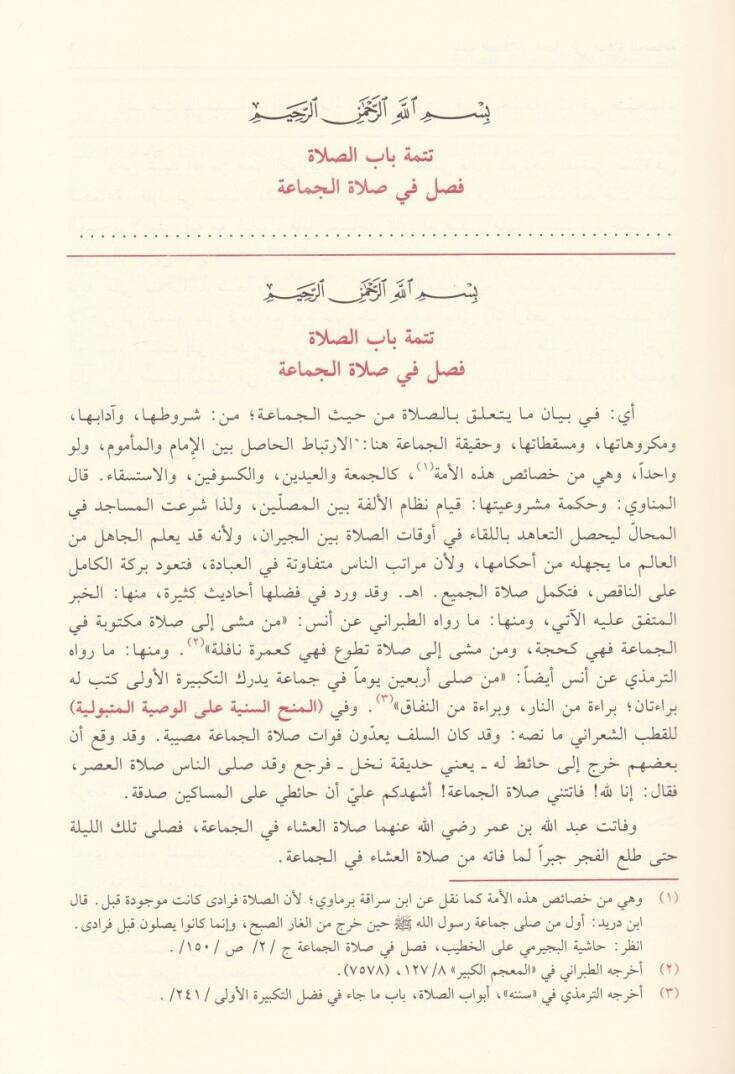 بِسْمِ ٱللَّهِ ٱلرَّحْمَٰنِ ٱلرَّحِيمِ
تتمة باب الصلاة
فصل في صلاة الجماعة
بِسْمِ ٱللَّهِ ٱلرَّحْمَٰنِ ٱلرَّحِيمِ
تتمة باب الصلاة
فصل في صلاة الجماعة
أي: في بيان ما يتعلق بالصلاة من حيث الجماعة؛ من: شروطها، وآدابها،
ومكروهاتها، ومسقطاتها، وحقيقة الجماعة هنا: الارتباط الحاصل بين الإمام والمأموم، ولو
واحداً، وهي من خصائص هذه الأمة(١)، كالجمعة والعيدين، والكسوفين، والاستسقاء. قال
المناوي: وحكمة مشروعيتها: قيام نظام الألفة بين المصلّين، ولذا شرعت المساجد في
المحالّ ليحصل التعاهد باللقاء في أوقات الصلاة بين الجيران، ولأنه قد يعلم الجاهل من
العالم ما يجهله من أحكامها، ولأن مراتب الناس متفاوتة في العبادة، فتعود بركة الكامل
على الناقص، فتكمل صلاة الجميع. اهـ. وقد ورد في فضلها أحاديث كثيرة، منها: الخبر
المتفق عليه الآتي، ومنها: ما رواه الطبراني عن أنس: «من مشى إلى صلاة مكتوبة في
الجماعة فهي كحجة، ومن مشى إلى صلاة تطوع فهي كعمرة نافلة»(٢). ومنها: ما رواه
الترمذي عن أنس أيضاً: «من صلى أربعين يوماً في جماعة يدرك التكبيرة الأولى كتب له
براءتان؛ براءة من النار، وبراءة من النفاق»(٣). وفي (المنح السنية على الوصية المتبولية)
للقطب الشعراني ما نصه: وقد كان السلف يعدّون فوات صلاة الجماعة مصيبة. وقد وقع أن
بعضهم خرج إلى حائط له ـ يعني حديقة نخل ـ فرجع وقد صلى الناس صلاة العصر،
فقال: إنا لله! فاتتني صلاة الجماعة! أشهدكم عليّ أن حائطي على المساكين صدقة.
وفاتت عبد الله بن عمر رضي الله عنهما صلاة العشاء في الجماعة، فصلى تلك الليلة
حتى طلع الفجر جبراً لما فاته من صلاة العشاء في الجماعة.
(١) وهي من خصائص هذه الأمة كما نقل عن ابن سراقة برماوي؛ لأن الصلاة فرادى كانت موجودة قبل. قال
ابن دريد: أول من صلى جماعة رسول الله ﷺ حين خرج من الغار الصبح، وإنما كانوا يصلون قبل فرادى.
انظر: حاشية البجيرمي على الخطيب، فصل في صلاة الجماعة ج /٢/ ص /١٥٠/.
(٢) أخرجه الطبراني في «المعجم الكبير» ١٢٧/٨، (٧٥٧٨).
(٣) أخرجه الترمذي في «سننه»، أبواب الصلاة، باب ما جاء في فضل التكبيرة الأولى /٢٤١/.